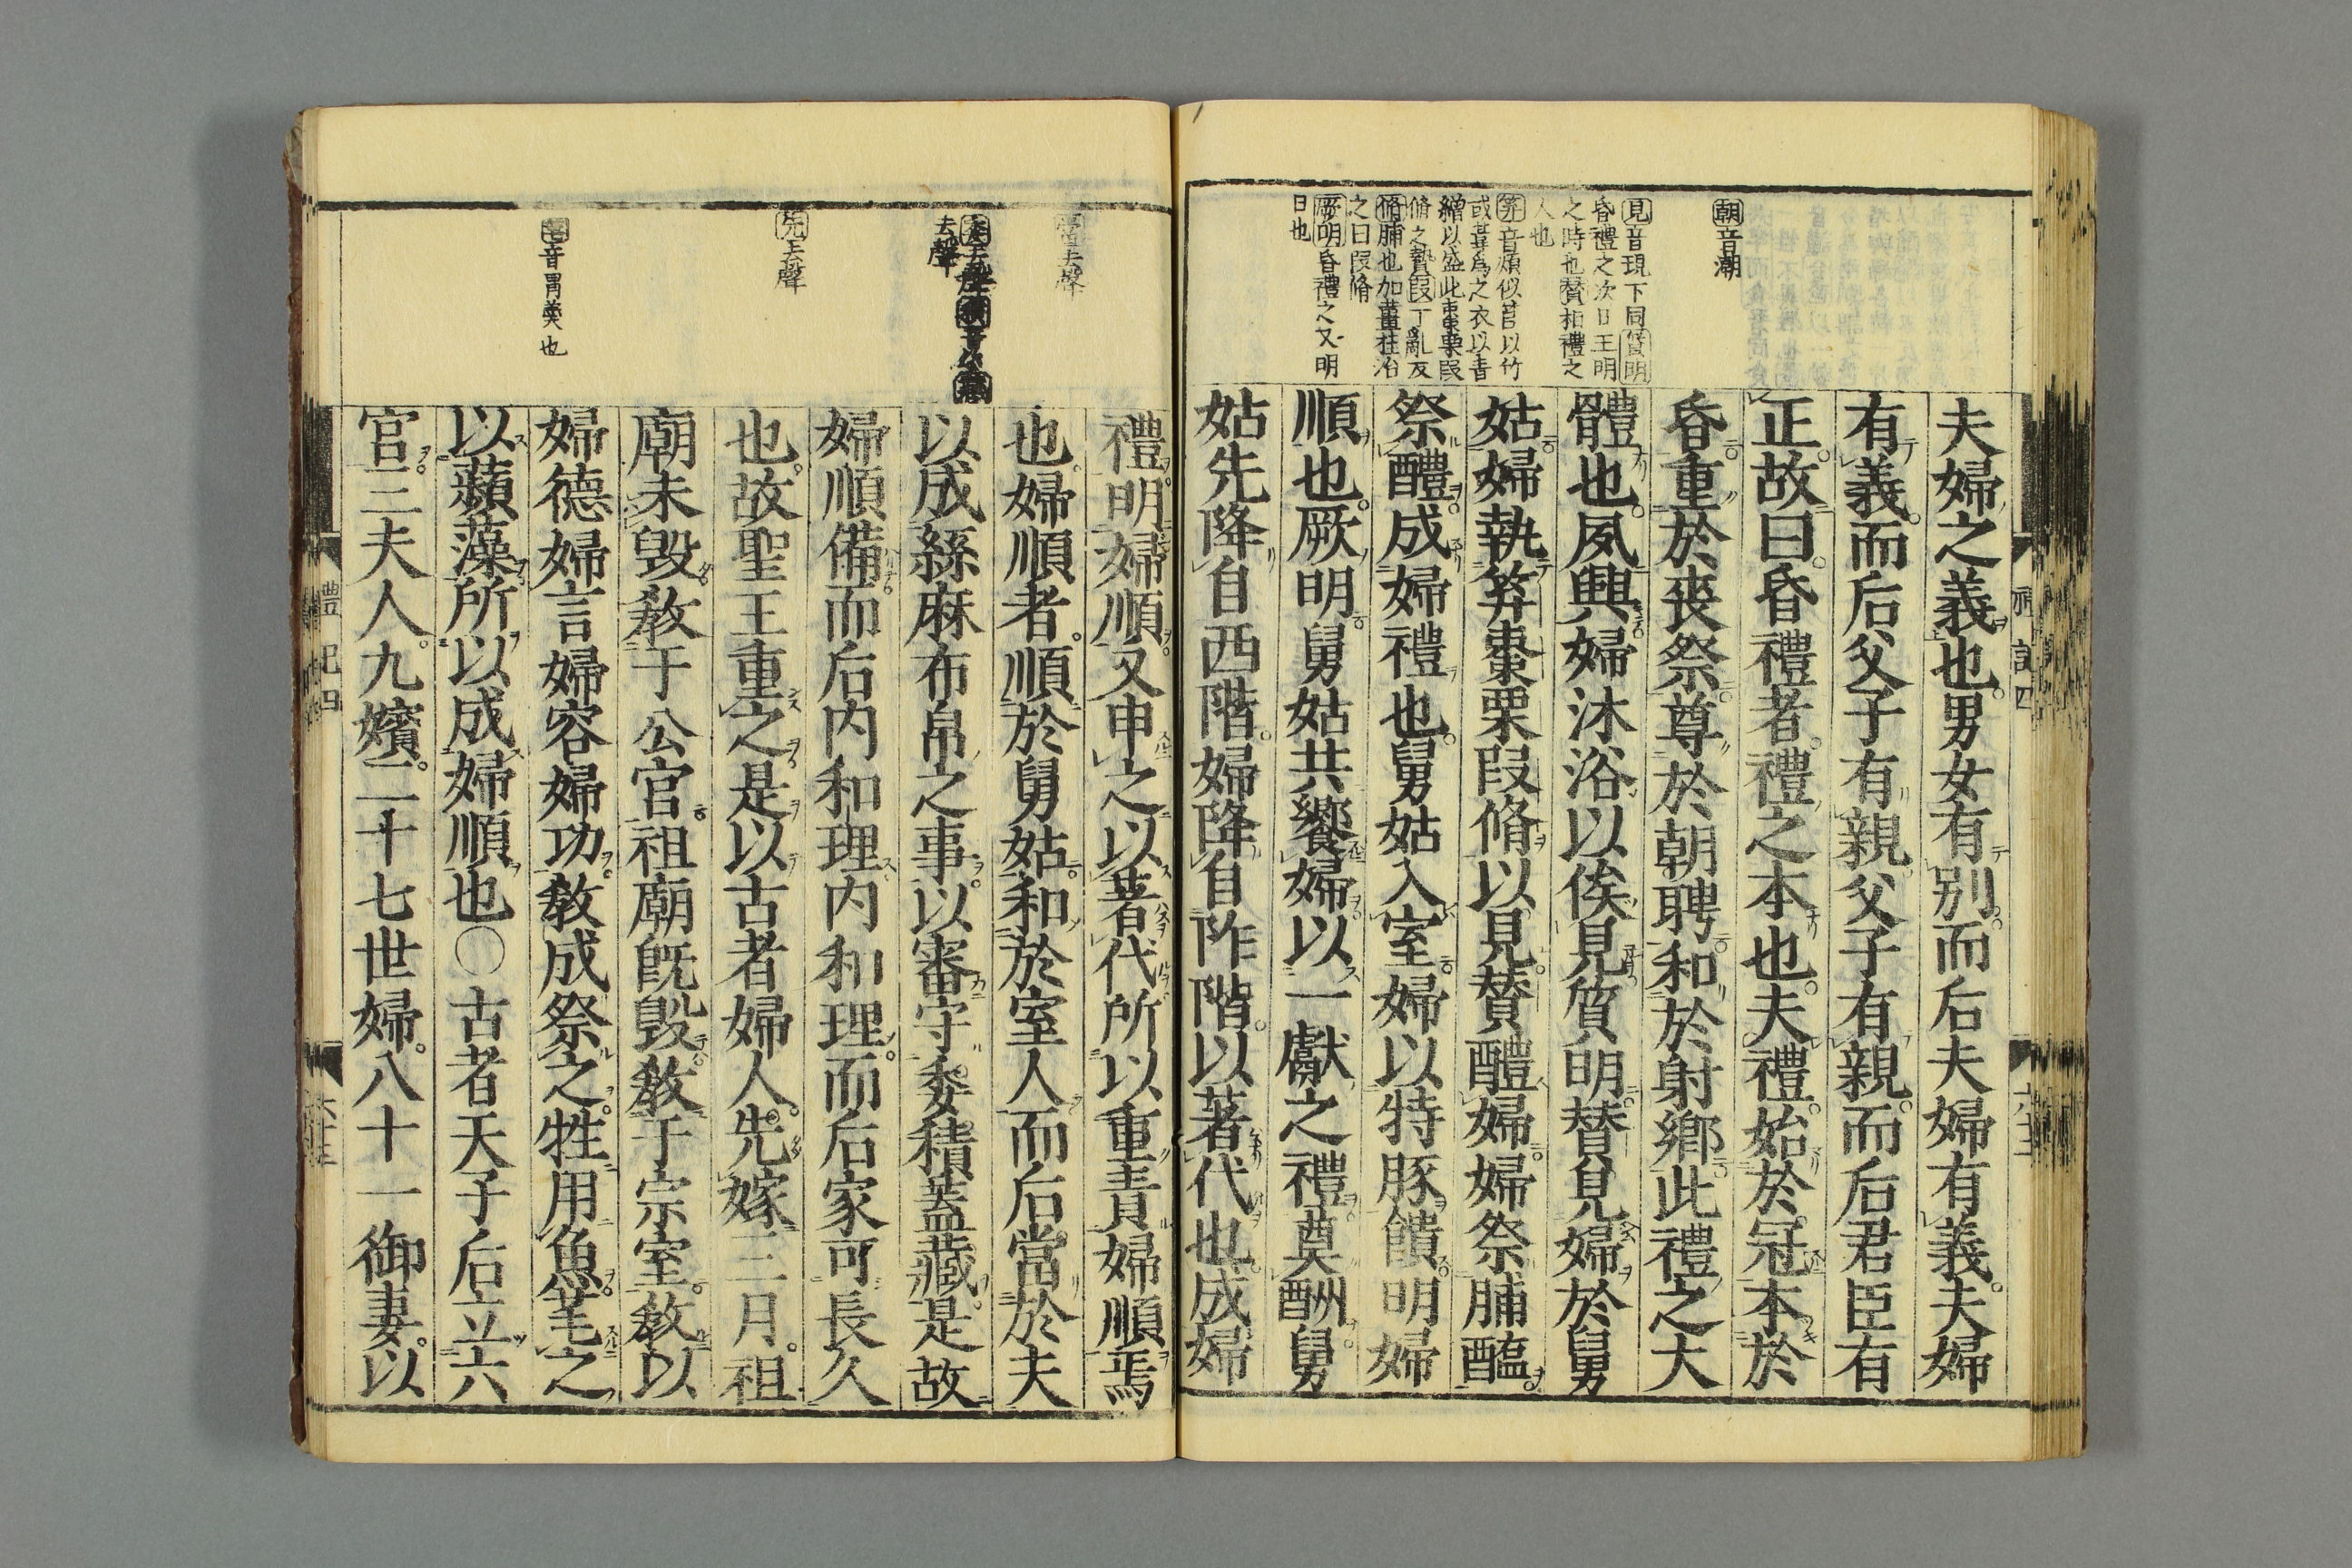 朝音潮
見音現下同質明
昏禮之次日王明
之時也贊相禮之
人也
笲音煩似筥以竹
或葦爲之衣以青
繒以盛此棗栗段
脩之贄段丁亂反
脩脯也加薑桂冶
之曰段脩
厥明昏禮之又明
日也
夫婦之義也男女有別而后夫婦有義夫婦
有義而后父子有親父子有親而后君臣有
正故曰昏禮者禮之本也夫禮始於冠本於
昏重於喪祭尊於朝聘和於射鄉此禮之大
體也夙興婦沐浴以俟見質明贊見婦於舅
姑婦執笲棗栗段脩以見贊醴婦婦祭脯醢
祭醴成婦禮也舅姑入室婦以特豚饋明婦
順也厥明舅姑共饗婦以一獻之禮奠酬舅
姑先降自西階婦降自阼階以著代也成婦
當去聲
去聲
先去聲
芼音冒羮也
禮明婦順又申之以著代所以重責婦順焉
也婦順者順於舅姑和於室人而后當於夫
以成絲麻布帛之事以審守委積蓋藏是故
婦順備而后内和理内和理而后家可長久
也故聖王重之是以古者婦人先嫁三月祖
廟未毀教于公官祖廟既毀教于宗室教以
婦德婦言婦容婦功教成祭之牲用魚芼之
以蘋藻所以成婦順也〇古者天子后立六
官三夫人九嬪二十七世婦八十一御妻以
禮記四
六十三